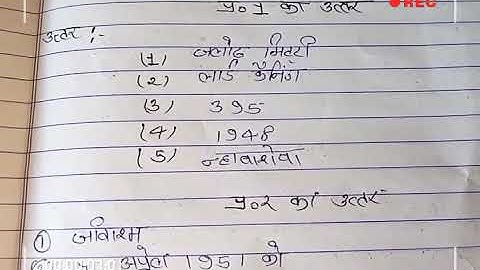 प्र०1 का उत्तर
REC
उत्तर :-
(1) जलोढ़ मिट्टी
(2) लार्ड कैनिंग
(3) 395
(4) 1948
(5) न्हावाशेवा
प्र०2 का उत्तर
①
अप्रैल 1951 को